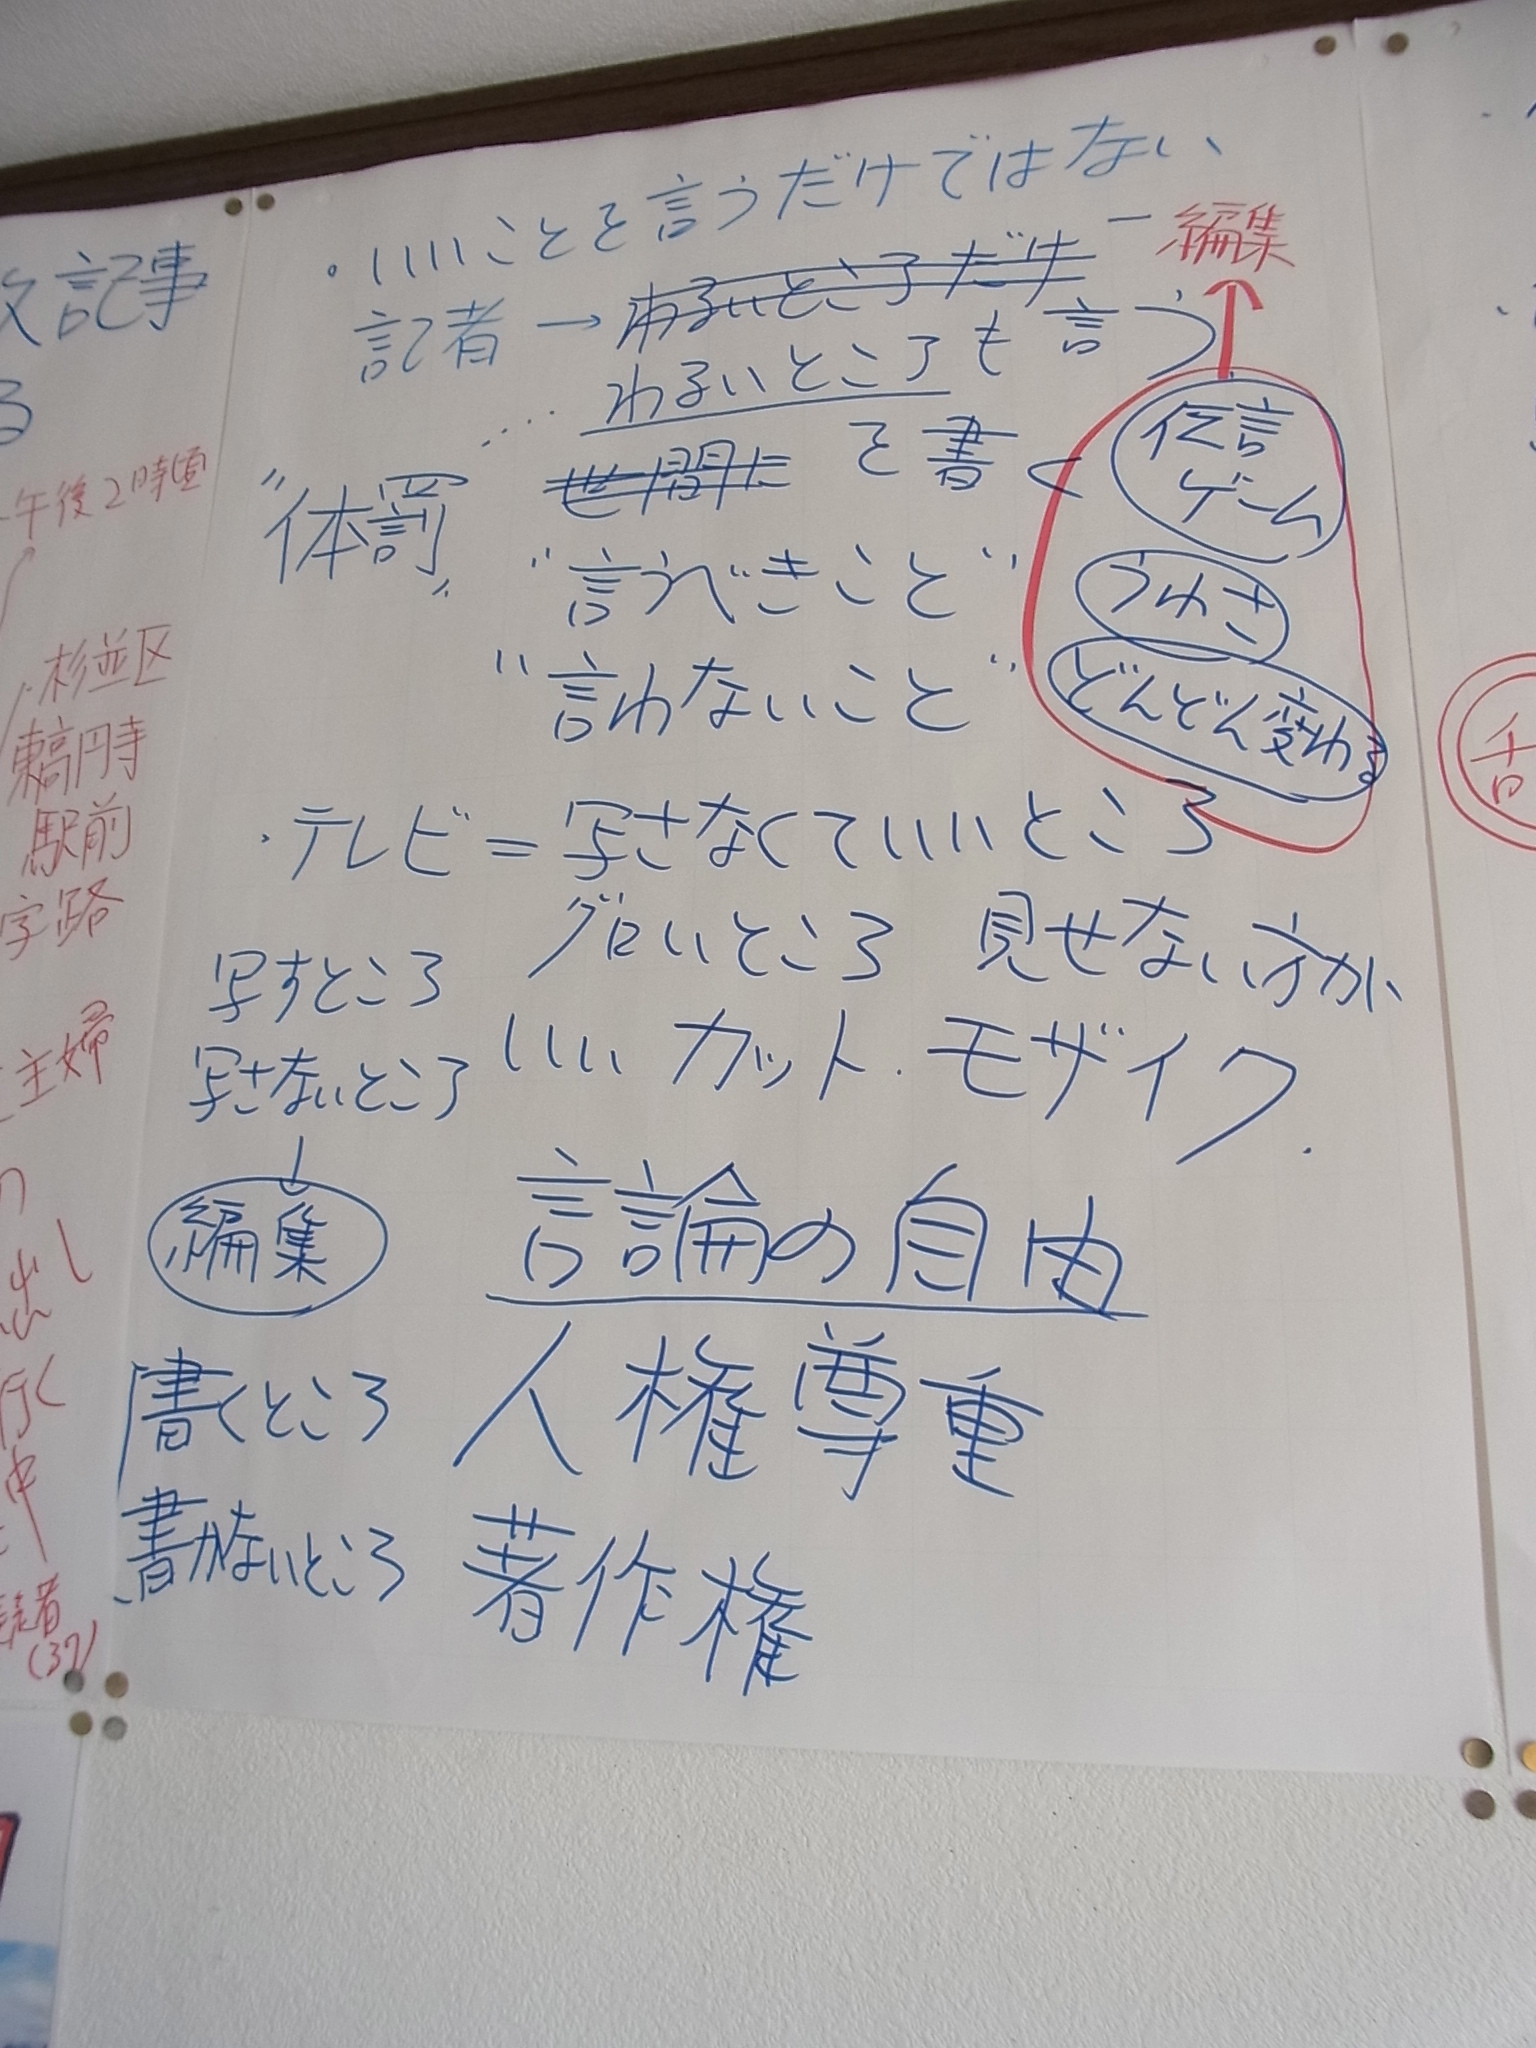 。いいことを言うだけではない
記者→わるいところだけ
ー編集
わるいところも言う
世間に を書く
"体罰"
"言うべきこと"
"言わないこと"
伝言
ゲーム
うわさ
どんどん変わる
・テレビ=写さなくていいところ
グロいところ 見せない方が
いい カット.モザイク.
写すところ
写さないところ
編集
言論の自由
人権尊重
著作権
書くところ
書かないところ
記事
る
午後2時頃
杉並区
東高円寺
駅前
字路
主婦
出し
行く
中
者
(37)